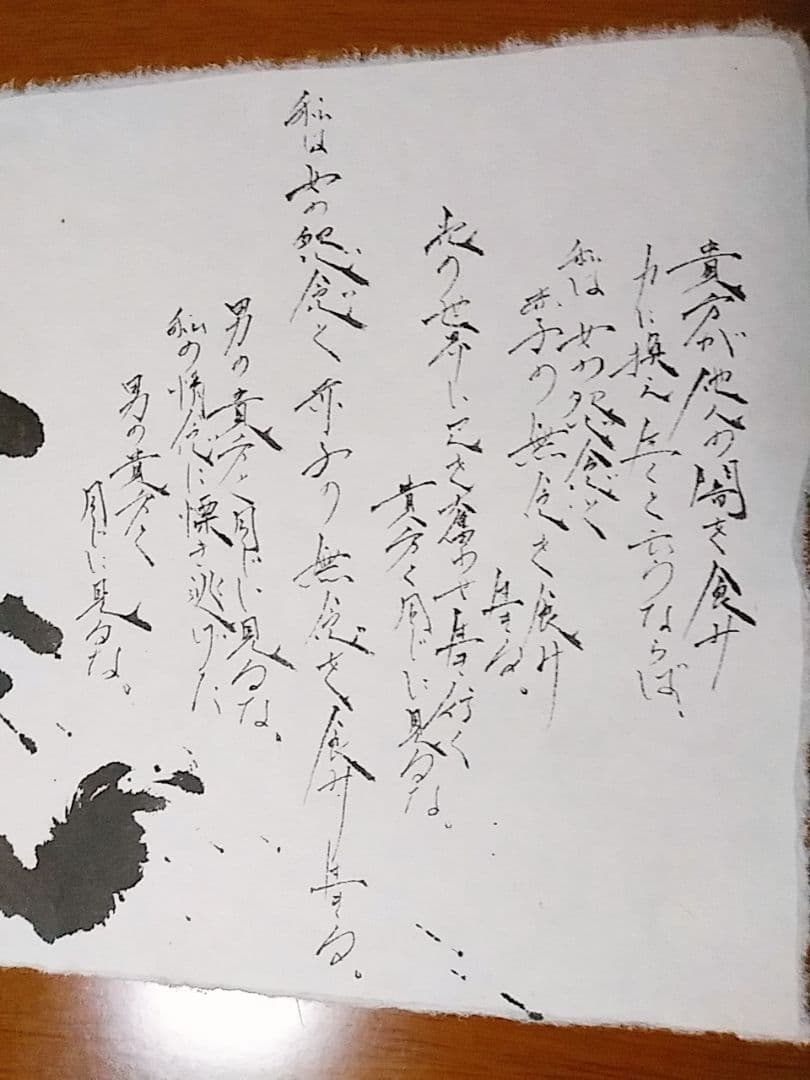 貴方が他人の闇を食み
力に換え生くと云うならば、
私は女の怨念と
赤子の無念を食み
生きる。
此の世界に足を奮わせ生き行く
貴方と同じに見るな。
私は女の怨念と赤子の無念を食み生きる。
男の貴方と同じに見るな。
私の情念に慄き逃げた
男の貴方と
同じに見るな。